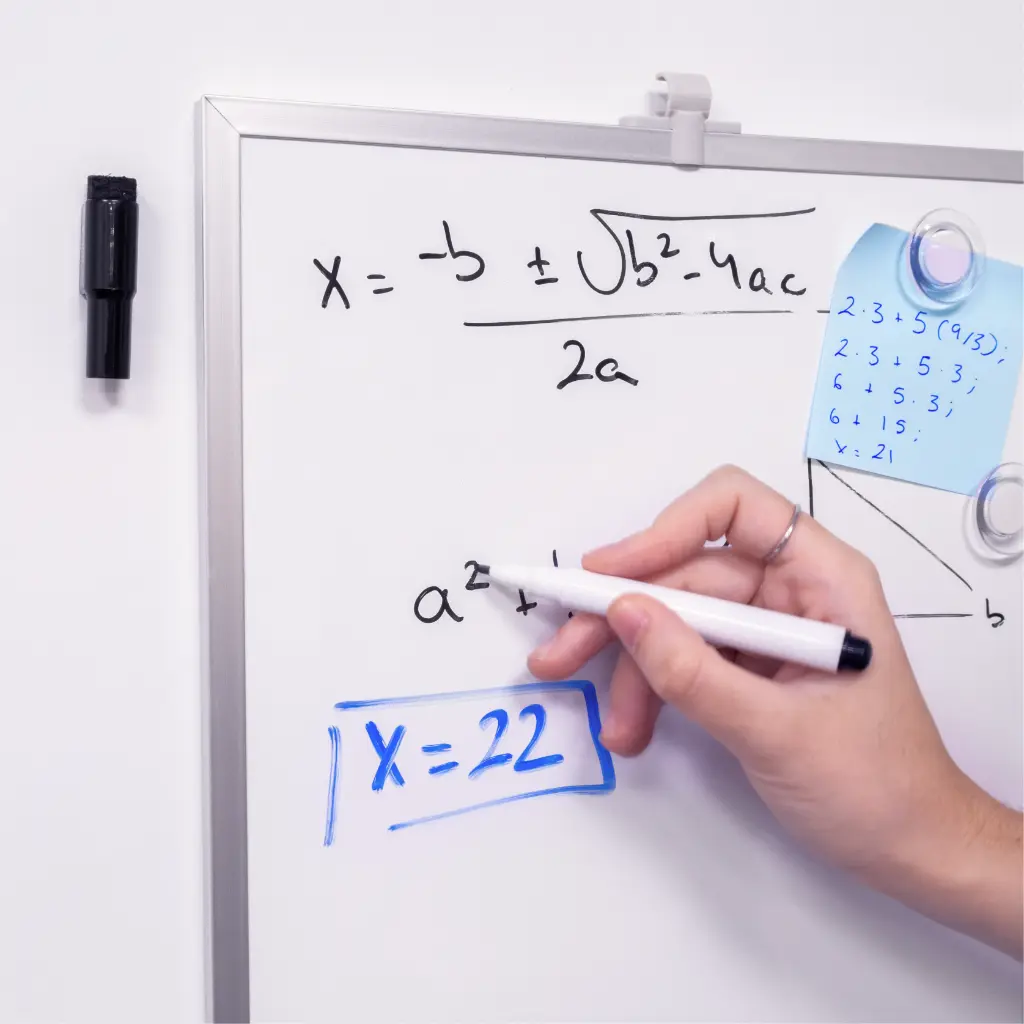 x = -b ± √b² - 4ac
2a
2·3 + 5 (9/3);
2·3 + 5·3;
6 + 5·3;
6 + 15;
x = 21
a² +
b
x = 22